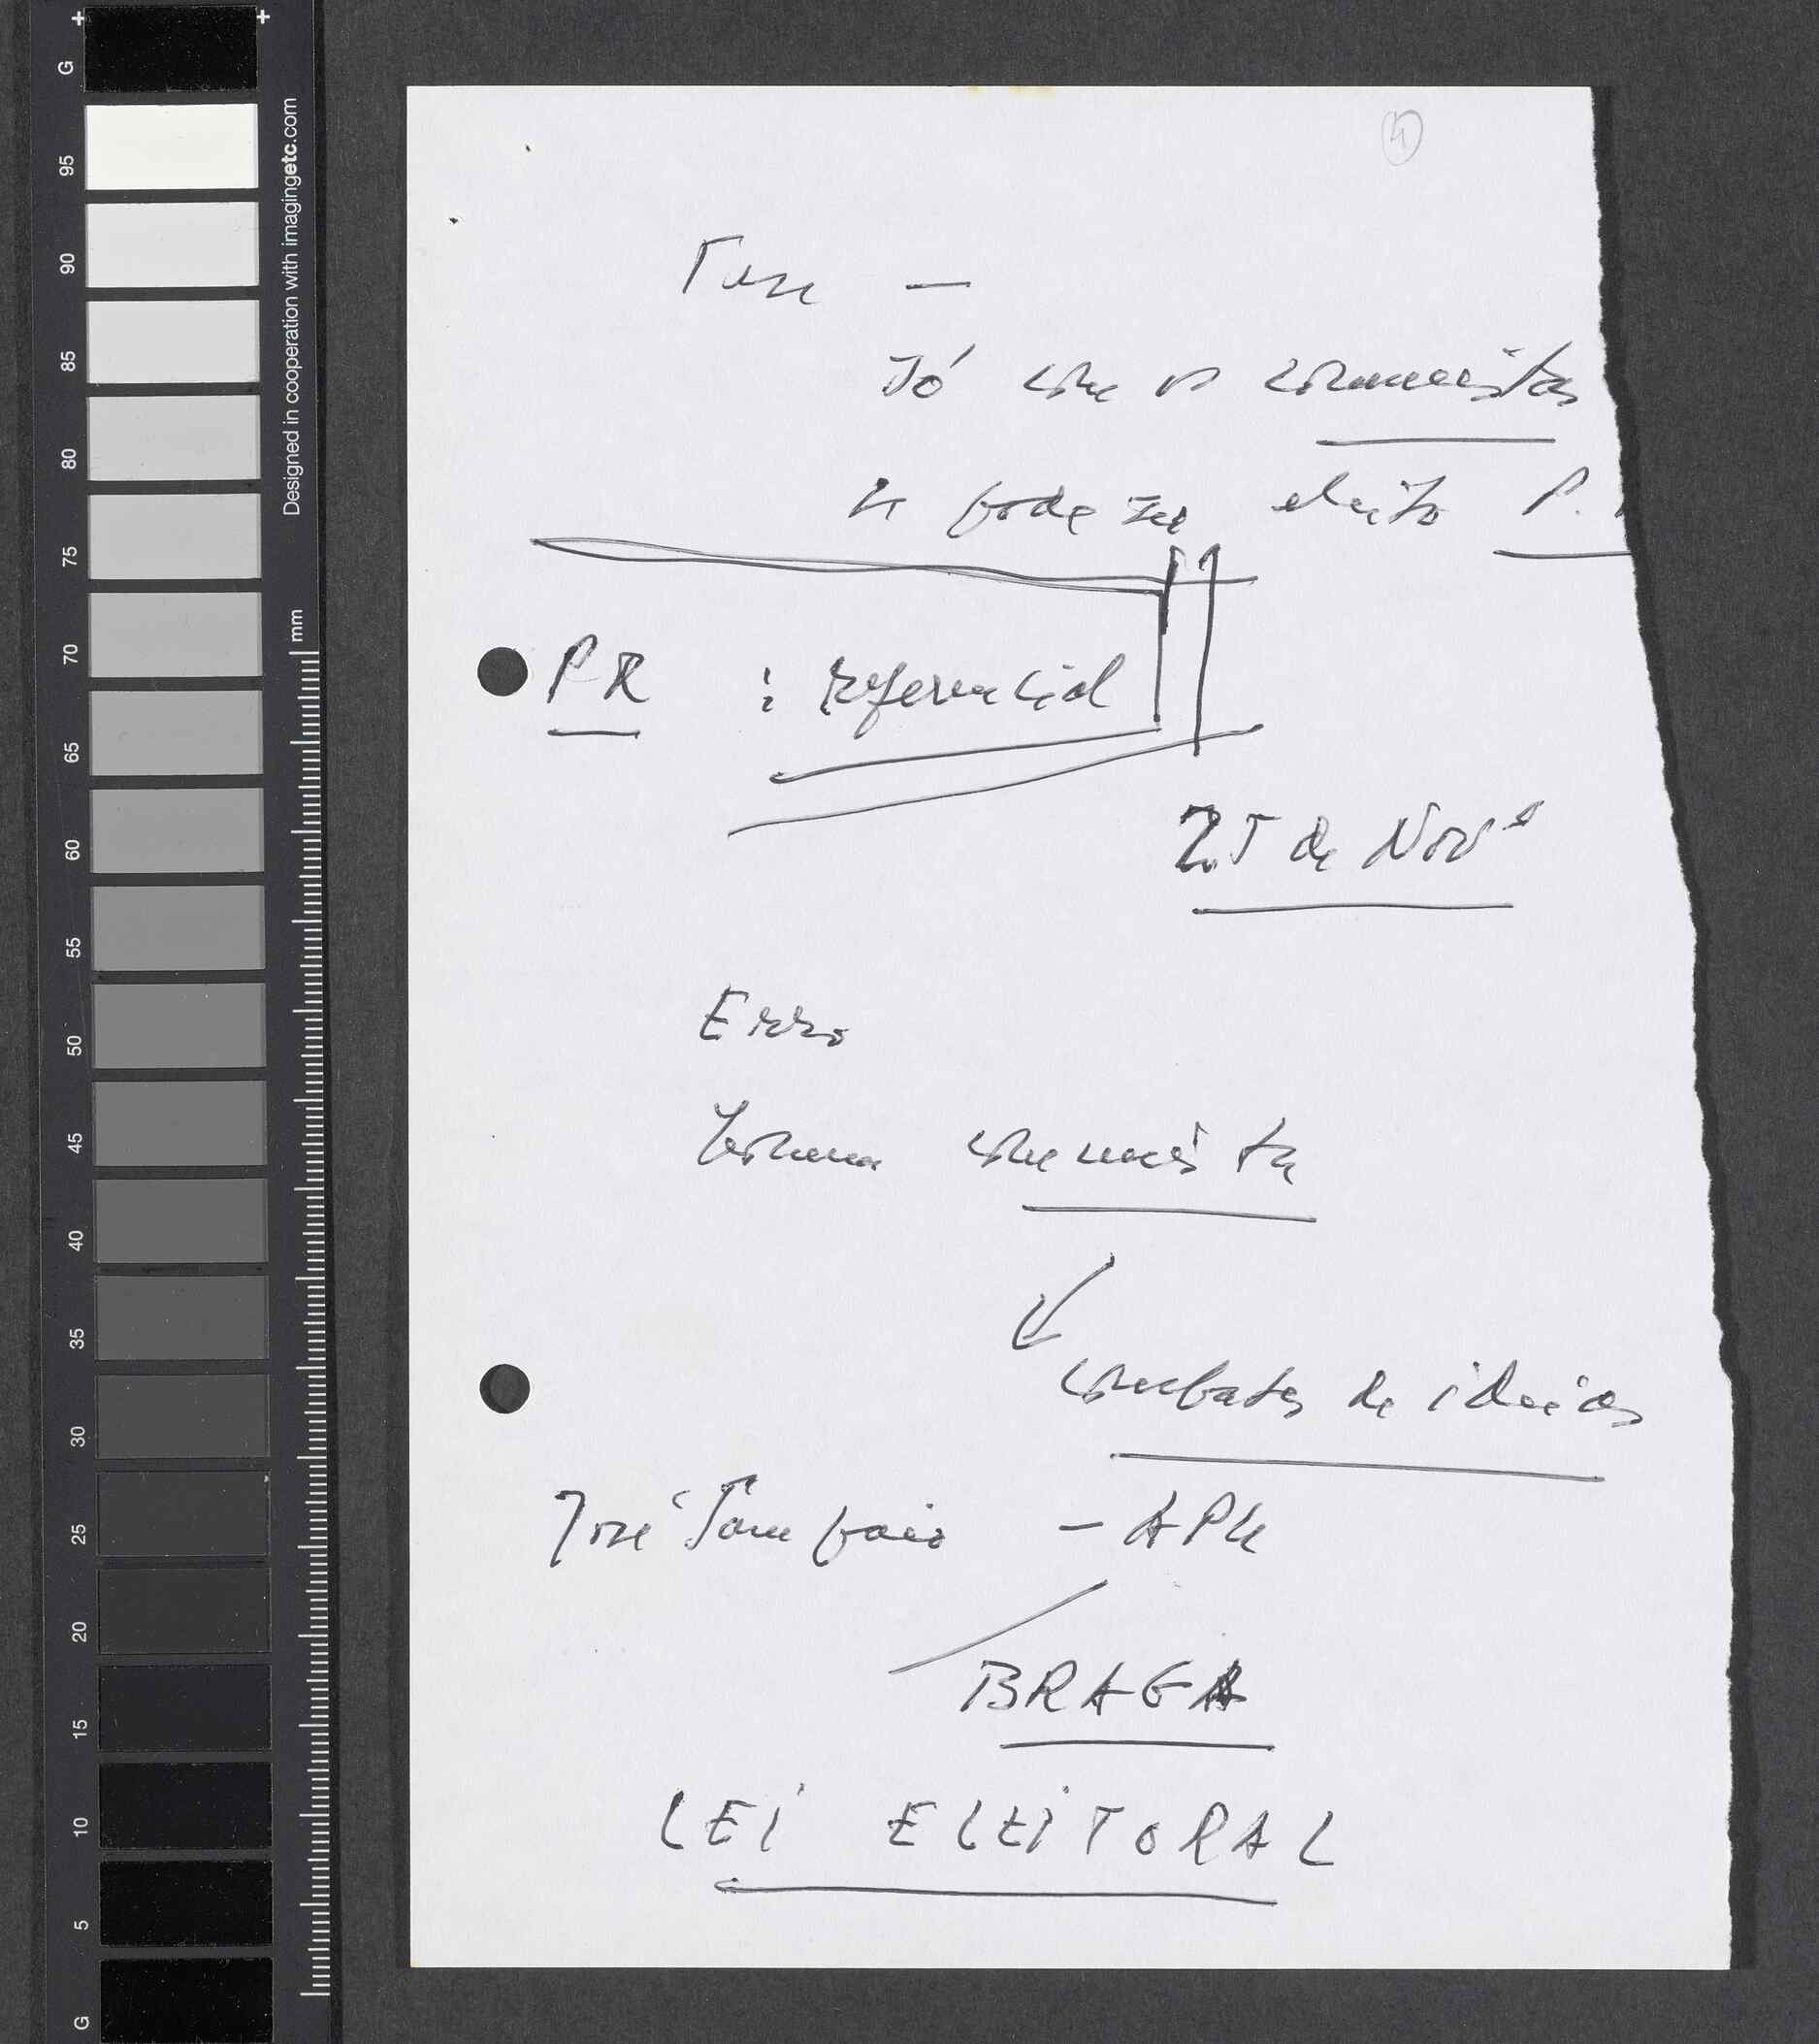 4
Tese —
Só com os comunistas
se pode ser eleito P.
PR : referencial
25 de Novº
Erro
comunista
combates de ideias
José Sampaio — APU
BRAGA
LEI ELEITORAL
Designed in cooperation with imagingetc.com
mm
G
95
90
85
80
75
70
65
60
55
50
45
40
35
30
25
20
15
10
5
G